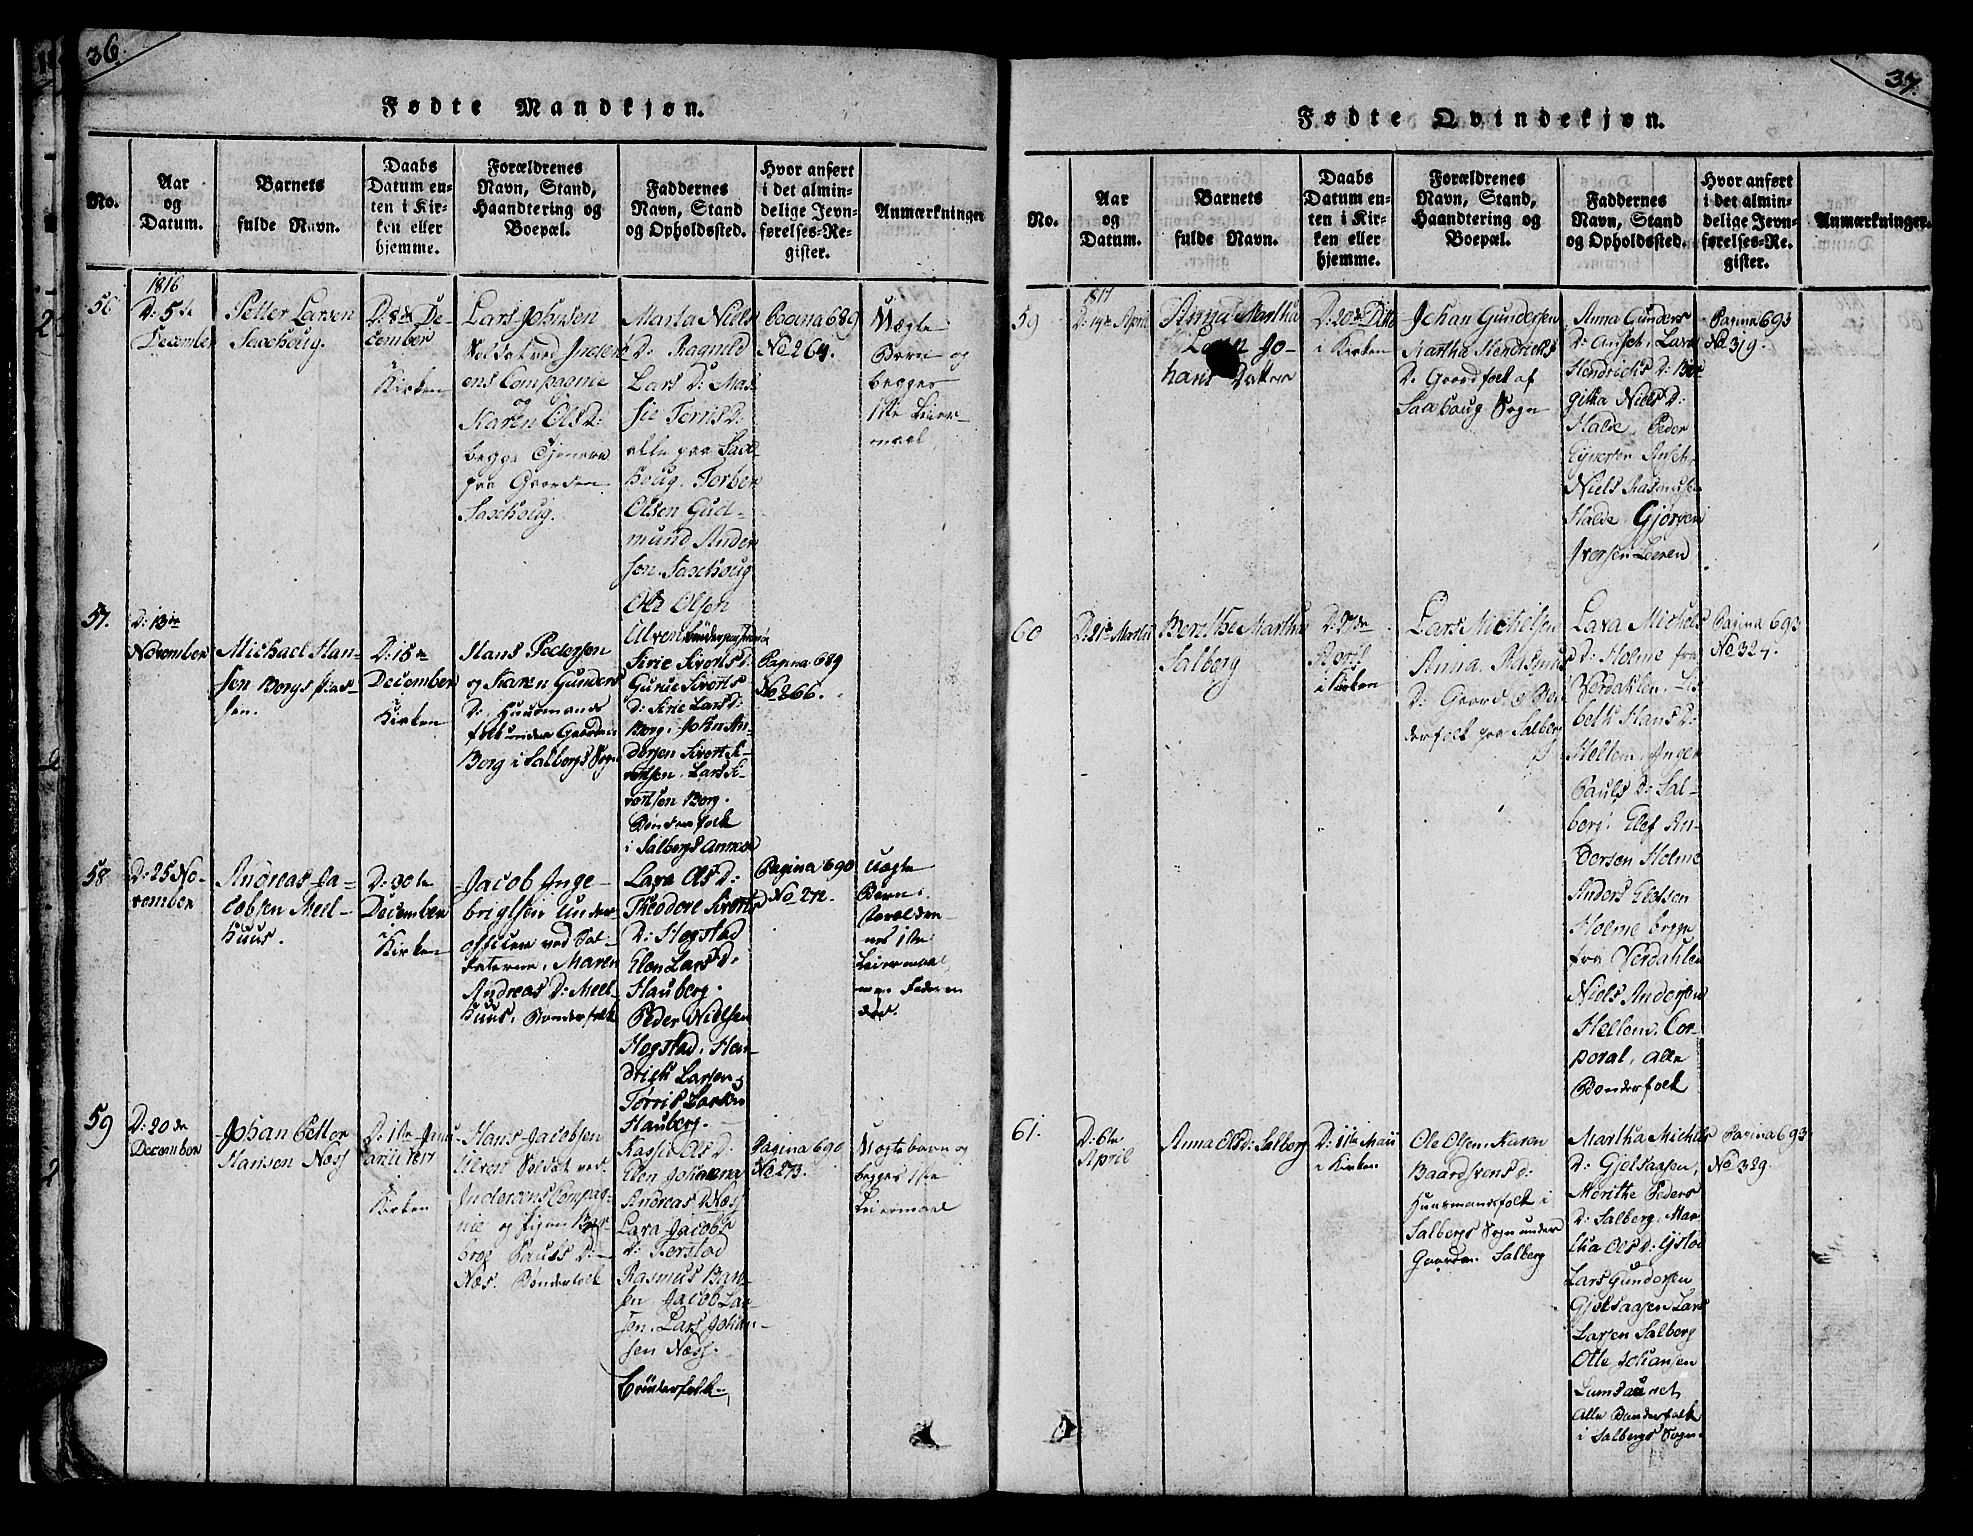 36.
Fødte Mandkjøn.
No.
Aar
og
Datum.
Barnets
fulde Navn.
Daabs
Datum en-
ten i Kir-
ken eller
hjemme.
Forældrenes
Navn, Stand,
Haandtering og
Boepæl.
Faddernes
Navn, Stand
og Opholdssted.
Hvor anført
i det almin-
delige Jevn-
førelses-Re-
gister.
Anmærkninger
56
1816
D: 5te
December
Petter Larsen
Saxhoug.
D: 8de De-
cember
i Kirken
Lars Johnsen
Soldat ved Inder-
ens Compagnie
og
Karen Ols D:
begge Tjenere
paa Gaarden
Saxhoug.
Marta Niels
D: Ragnild
Lars D: Mas-
sie Torris D:
alle paa Sax-
houg. Torber
Olsen Gud-
mund Ander
sen. Saxhoug
Ole Olsen
Pagina 689
No 264.
Uægte
Barn og
begges
1ste Leier-
maal
57.
D: 13de
November
Michael Han-
sen Borgs
D: 15de
December
i Kirken
Hans Pedersen
og Karen Gunders
D: Huusmands
folk under Gaarden
Borg i Salbergs Sogn
Ulven
Sirie Siverts D:
Gurue Siverts
D: Sirie Lars D:
Borg. John An-
dersen Sivert Si-
vertsen. Lars Si-
vertsen Borg.
Bønderfolk
i Salbergs Annex
Pagina 689
No 266.
58
D: 25 No-
vember
Andreas Ja-
cobsen Meel-
huus.
D: 30te
December
i Kirken
Jacob Inge-
brigtsen Under-
officeer ved Sol-
daterne. Maren
Andreas D: Meel-
huus. Bønderfolk
Lara Ols D:
Theodore Siverts
D: Hogstad
Elen Lars D:
Hauberg.
Peder Nielsen
Hogstad. Hen-
drich Larsen,
Torris Larsen
Hauberg.
Pagina 690
No 272.
Uægte
Barn.
Forældre-
nes 1ste
Leiermaal
59
D: 20de
December
Johan Petter
Hansen Næss
D: 1ste Janu-
arii 1817
i Kirken
Hans Jacobsen
Ulven Soldat ved
Inderøens Compag-
nie og Pigen Bar-
broe Pauls D:
Næs. Bønderfolk
Kasfie Ols D:
Elen Johanna
Andreas D: Næss
Lara Jacobs
D: Forstad
Rasmus Han-
sen. Jacob Lar-
sen. Lars Johan-
sen Næss.
Bønderfolk.
Pagina 690
No 273.
Uægte barn og
begges 1ste
Leiermaal
37.
Fødte Qvindekjøn.
No.
Aar
og
Datum.
Barnets
fulde Navn.
Daabs
Datum en-
ten i Kir-
ken eller
hjemme.
Forældrenes
Navn, Stand,
Haandtering og
Boepæl.
Faddernes
Navn, Stand
og Opholdssted.
Hvor anført
i det almin-
delige Jevn-
førelses-Re-
gister.
Anmærkninger.
59
1817
D: 14de April
Anna Martha
Jo-
hans Datter
D: 20de Ditto
i Kirken
Johan Gundersen
Martha Hendrichs
D. Gaardfolk af
Saxhoug Sogn
Anna Gunders
D: Lara
Hendrichs D: Bir-
githa Niels D:
Halde. Peder
Ejversen
Niels Rasmusen
Halde. Gjørgen
Iversen Leeren
Pagina 693
No 319.
60
D: 21de Martii
Berethe Martha
Salberg
D: 7de
April
i Kirken
Lars Michelsen
Anna Rasmus
D: Gaard og Bøn-
derfolk paa Salberg
Lara Michels
D: Holme fra
Verdahlen. Lis-
beth Hans D:
Hollem. Inger
Pauls D: Sal-
berg. Elef An-
dersen Holme
Anders Elefsen
Holme begge
fra Verdahlen
Niels Andersen
Hellem. Cor-
poral. Alle
Bønderfolk
Pagina 693
No 324.
61.
D: 6te
April
Anna Ols D: Salberg
D: 11te Maii
i Kirken
Ole Olsen. Karen
Baardsvens D:
Huusmandsfolk i
Salbergs Sogn under
Gaarden Salberg
Martha Michels
D: Gjelsaasen,
Merithe Peders
D: Salberg, Mar-
tha Ols D:
Lars Gundersen
Gjelsaasen Lars
Larsen Salberg
Otte Johansen
Lumsaunet
Alle Bønderfolk
i Salbergs Sogn.
Pagina 693
No 329.